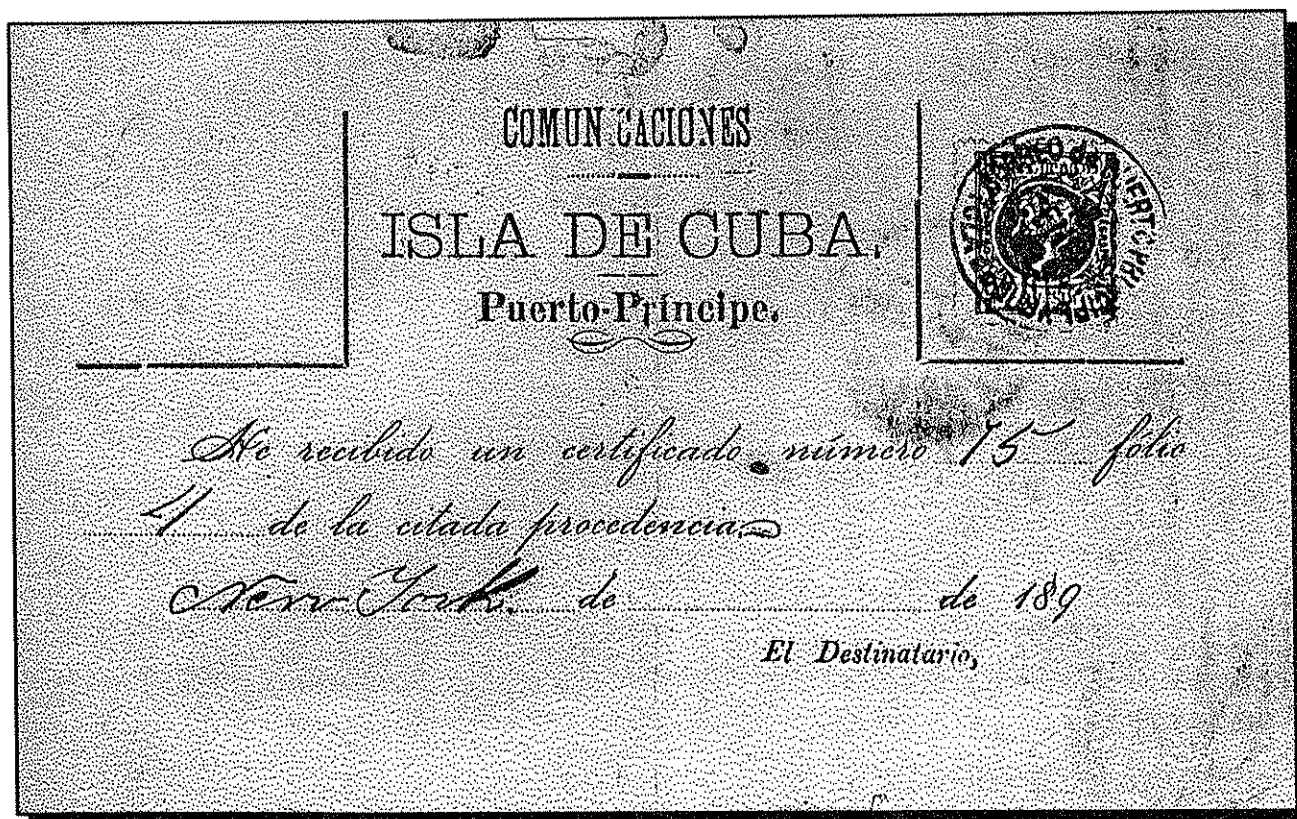 COMUNICACIONES
ISLA DE CUBA.
Puerto-Príncipe.
He recibido un certificado número 75 fólio
4 de la citada procedencia
New York. de de 189
El Destinatario,